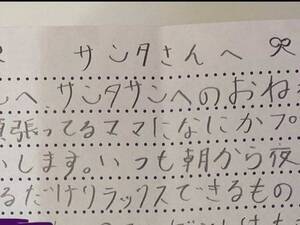 サンタさんへ
へ、サンタサンへのおね
張ってるママになにかプ
します。いつも朝から夜
るだけリラックスできるもの